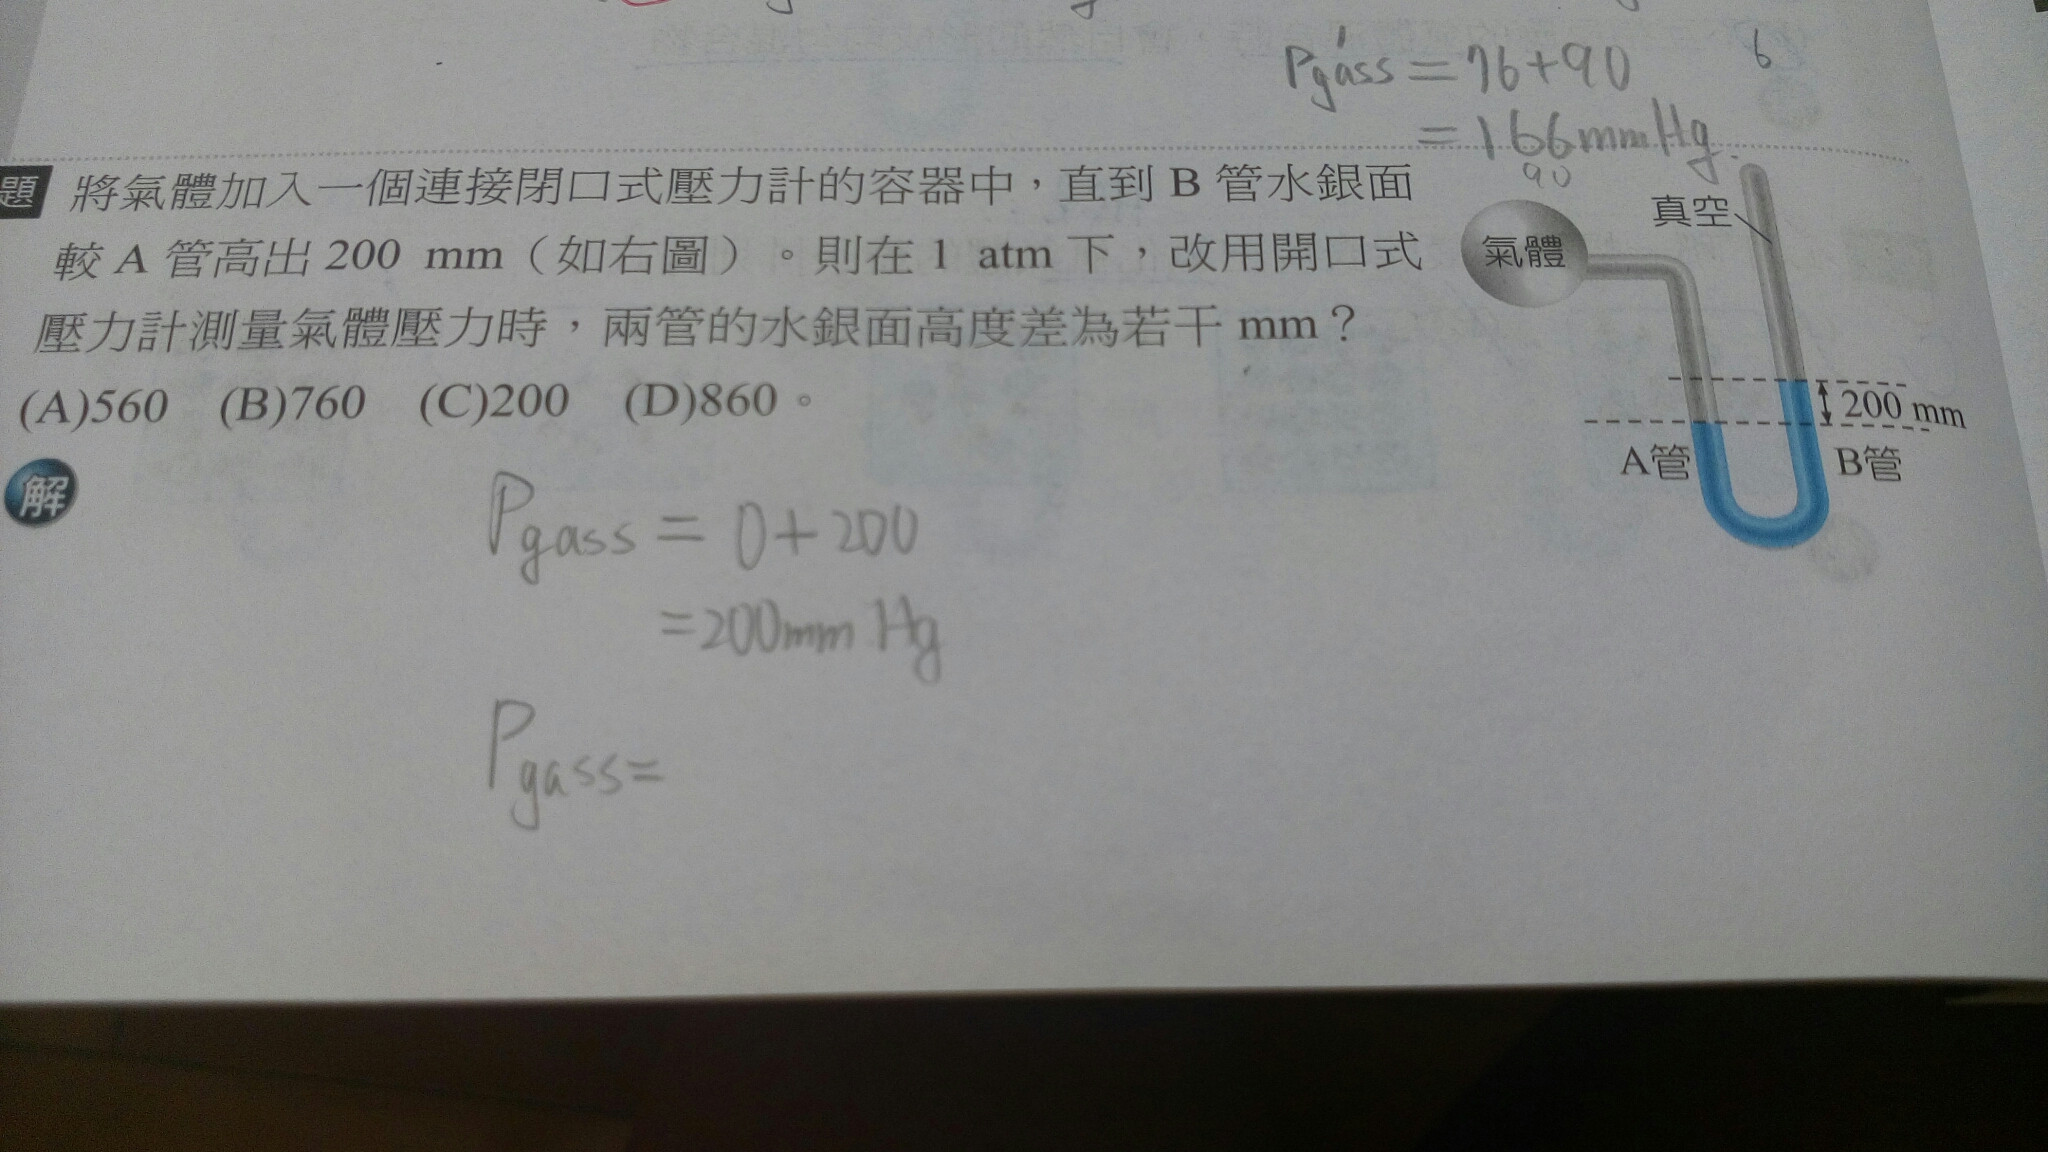 P'gass = 76+90
= 166mmHg
90
6
題 將氣體加入一個連接閉口式壓力計的容器中，直到 B 管水銀面
較 A 管高出 200 mm（如右圖）。則在 1 atm 下，改用開口式
壓力計測量氣體壓力時，兩管的水銀面高度差為若干 mm？
(A)560 (B)760 (C)200 (D)860。
氣體
真空
200 mm
A管
B管
解
Pgass = 0+200
=200mm Hg
Pgass=